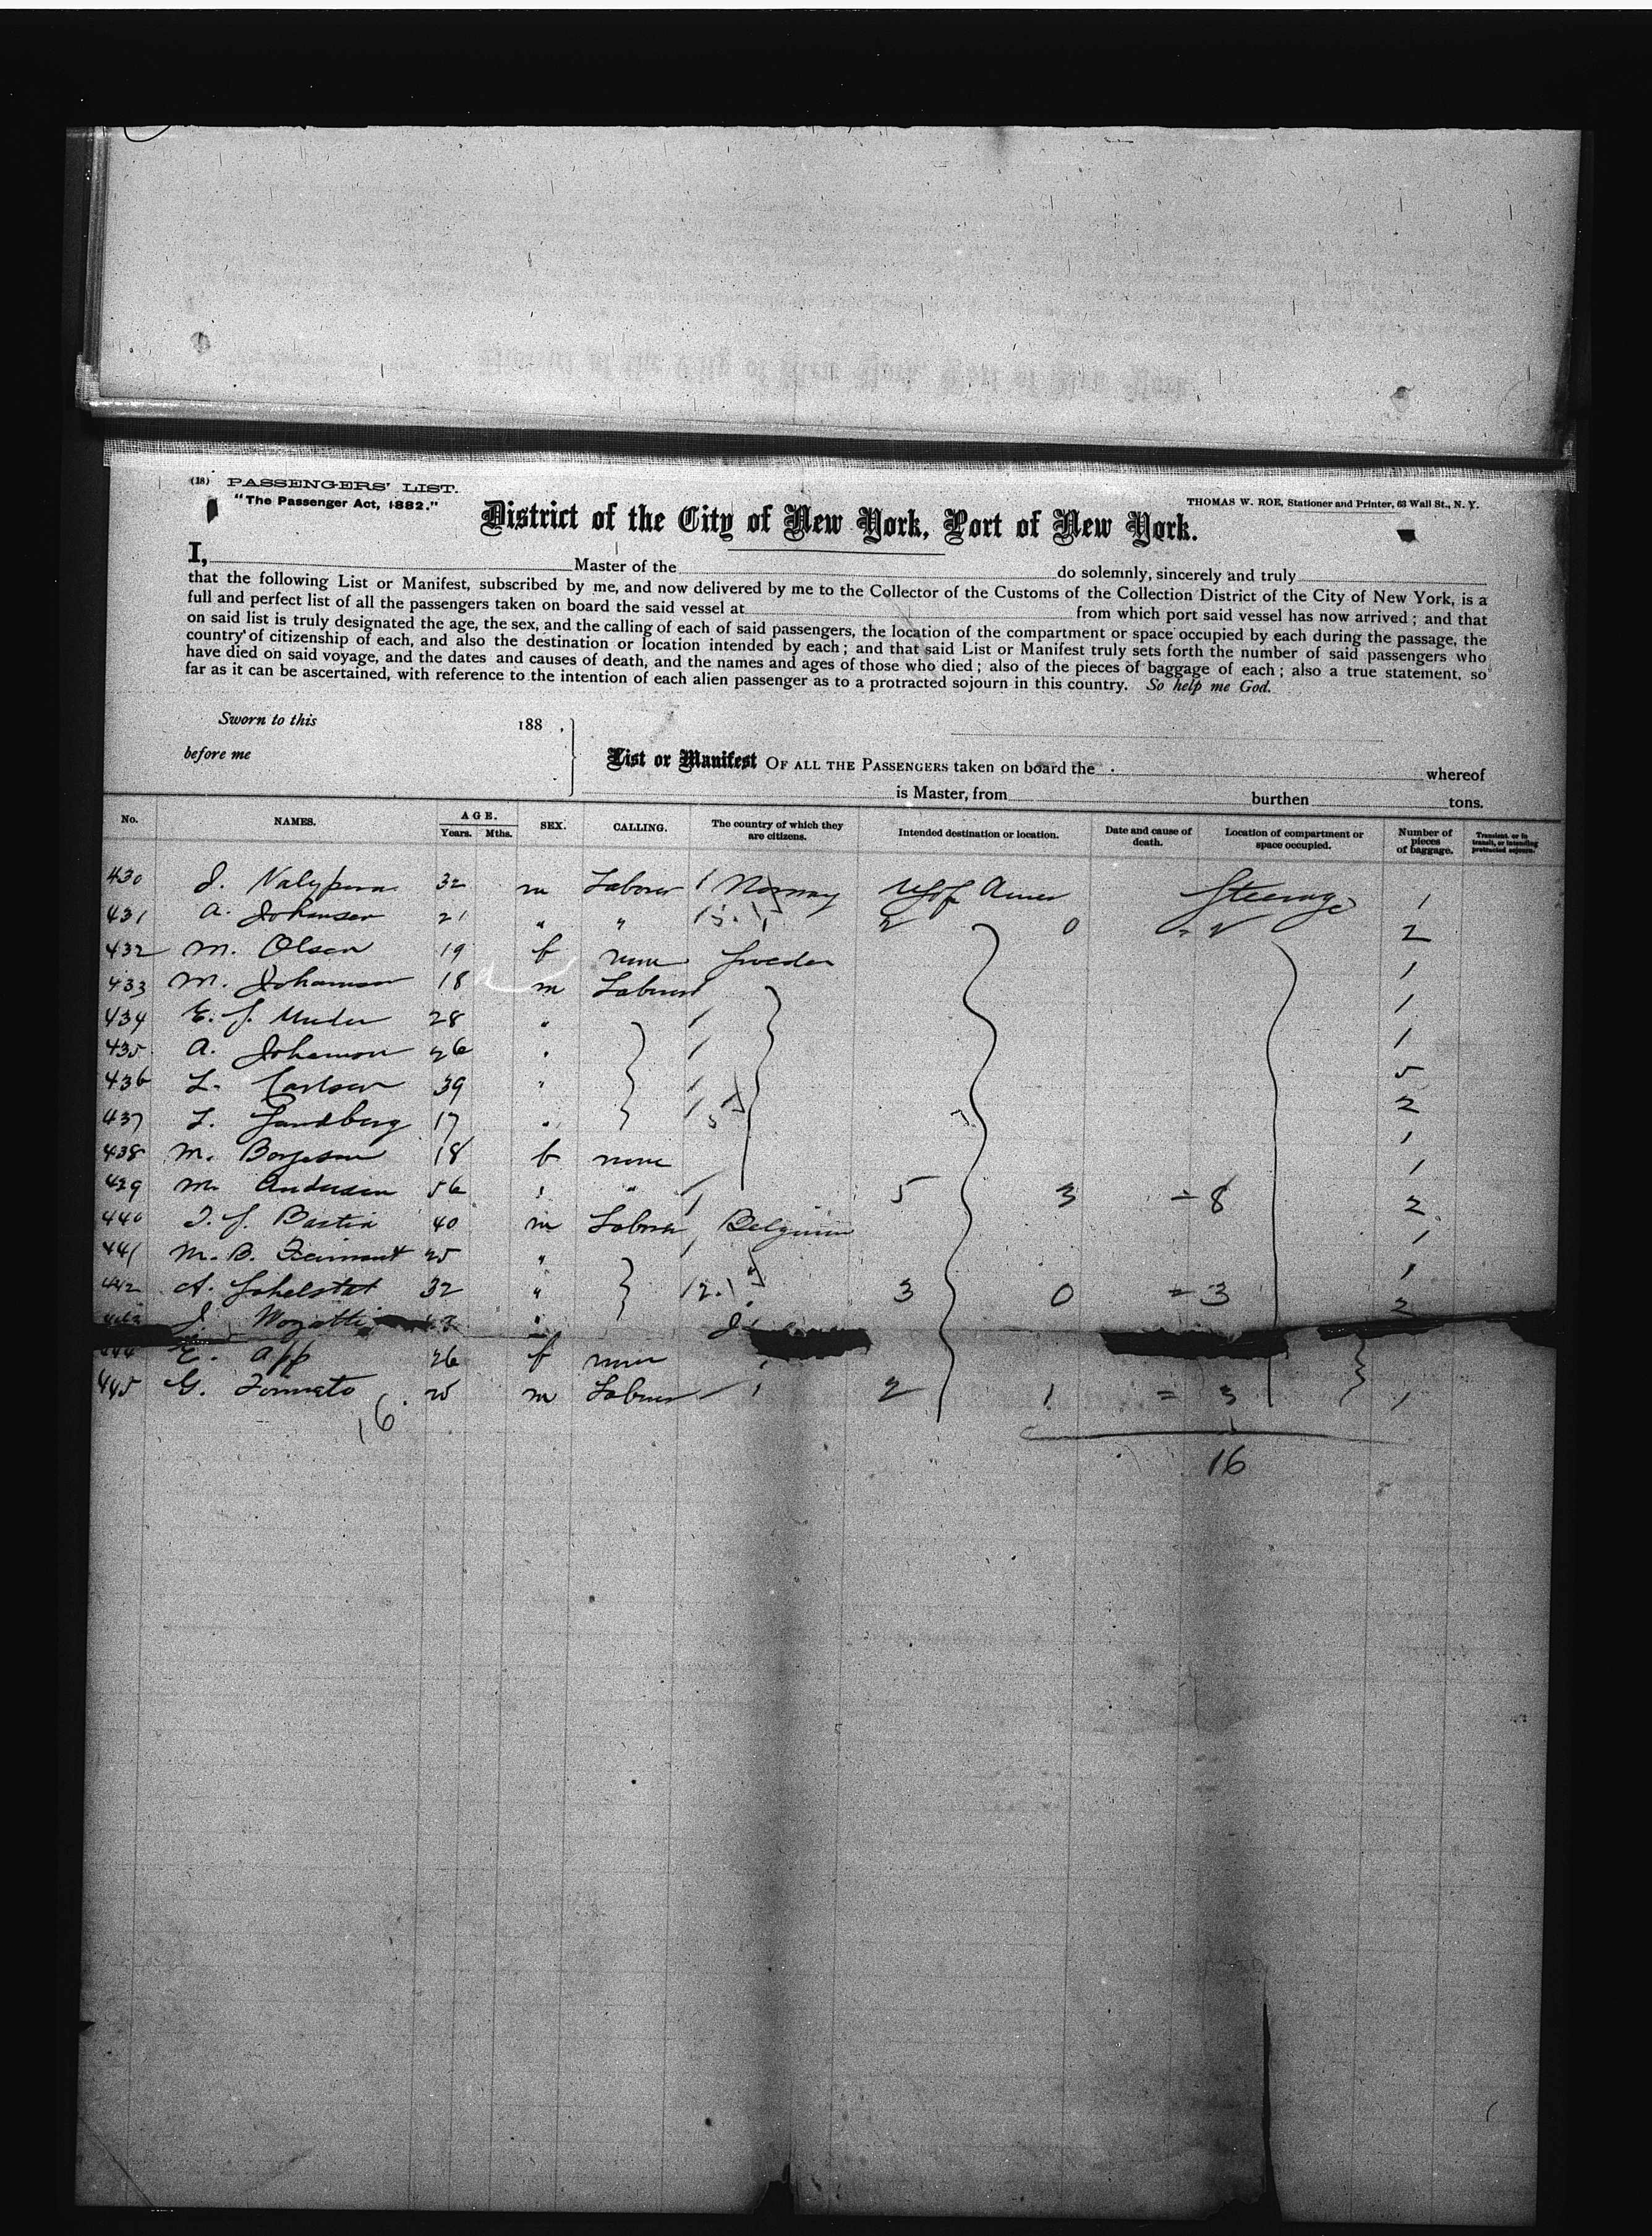 (18) PASSENGERS' LIST.
"The Passenger Act, 1882."
THOMAS W. ROE, Stationer and Printer, 63 Wall St., N. Y.
District of the City of New York, Port of New York.
I, Master of the do solemnly, sincerely and truly
that the following List or Manifest, subscribed by me, and now delivered by me to the Collector of the Customs of the Collection District of the City of New York, is a
full and perfect list of all the passengers taken on board the said vessel at from which port said vessel has now arrived; and that
on said list is truly designated the age, the sex, and the calling of each of said passengers, the location of the compartment or space occupied by each during the passage, the
country of citizenship of each, and also the destination or location intended by each; and that said List or Manifest truly sets forth the number of said passengers who
have died on said voyage, and the dates and causes of death, and the names and ages of those who died; also of the pieces of baggage of each; also a true statement, so
far as it can be ascertained, with reference to the intention of each alien passenger as to a protracted sojourn in this country. So help me God.
Sworn to this 188 .
before me
List or Manifest OF ALL THE PASSENGERS taken on board the whereof
is Master, from burthen tons.
No. NAMES. AGE. Years. Mths. SEX. CALLING. The country of which they are citizens. Intended destination or location. Date and cause of death. Location of compartment or space occupied. Number of pieces of baggage. Transient, or in transit, or intending protracted sojourn.
430 J. 32 m Laborer Norway US of Amer Steerage 1
431 A. Johansen 21 " " 2 0 = 2 2
432 M. Olsen 19 f none Sweden 1
433 M. Johanson 18 m Laborer 1
434 E. J. 28 " 1
435 A. Johanson 26 " 5
436 L. Carlson 39 " 2
437 L. Sandberg 17 " 1
438 M. Borjeson 18 f none 1
439 M. Anderson 56 " " 5 3 = 8 2
440 J. J. Bastin 40 m Laborer Belgium 1
441 M. B. 25 " 1
442 A. 32 " 3 0 = 3 2
J.
444 E. App 26 f none
445 G. 25 m Laborer 2 1 = 3 1
16
16